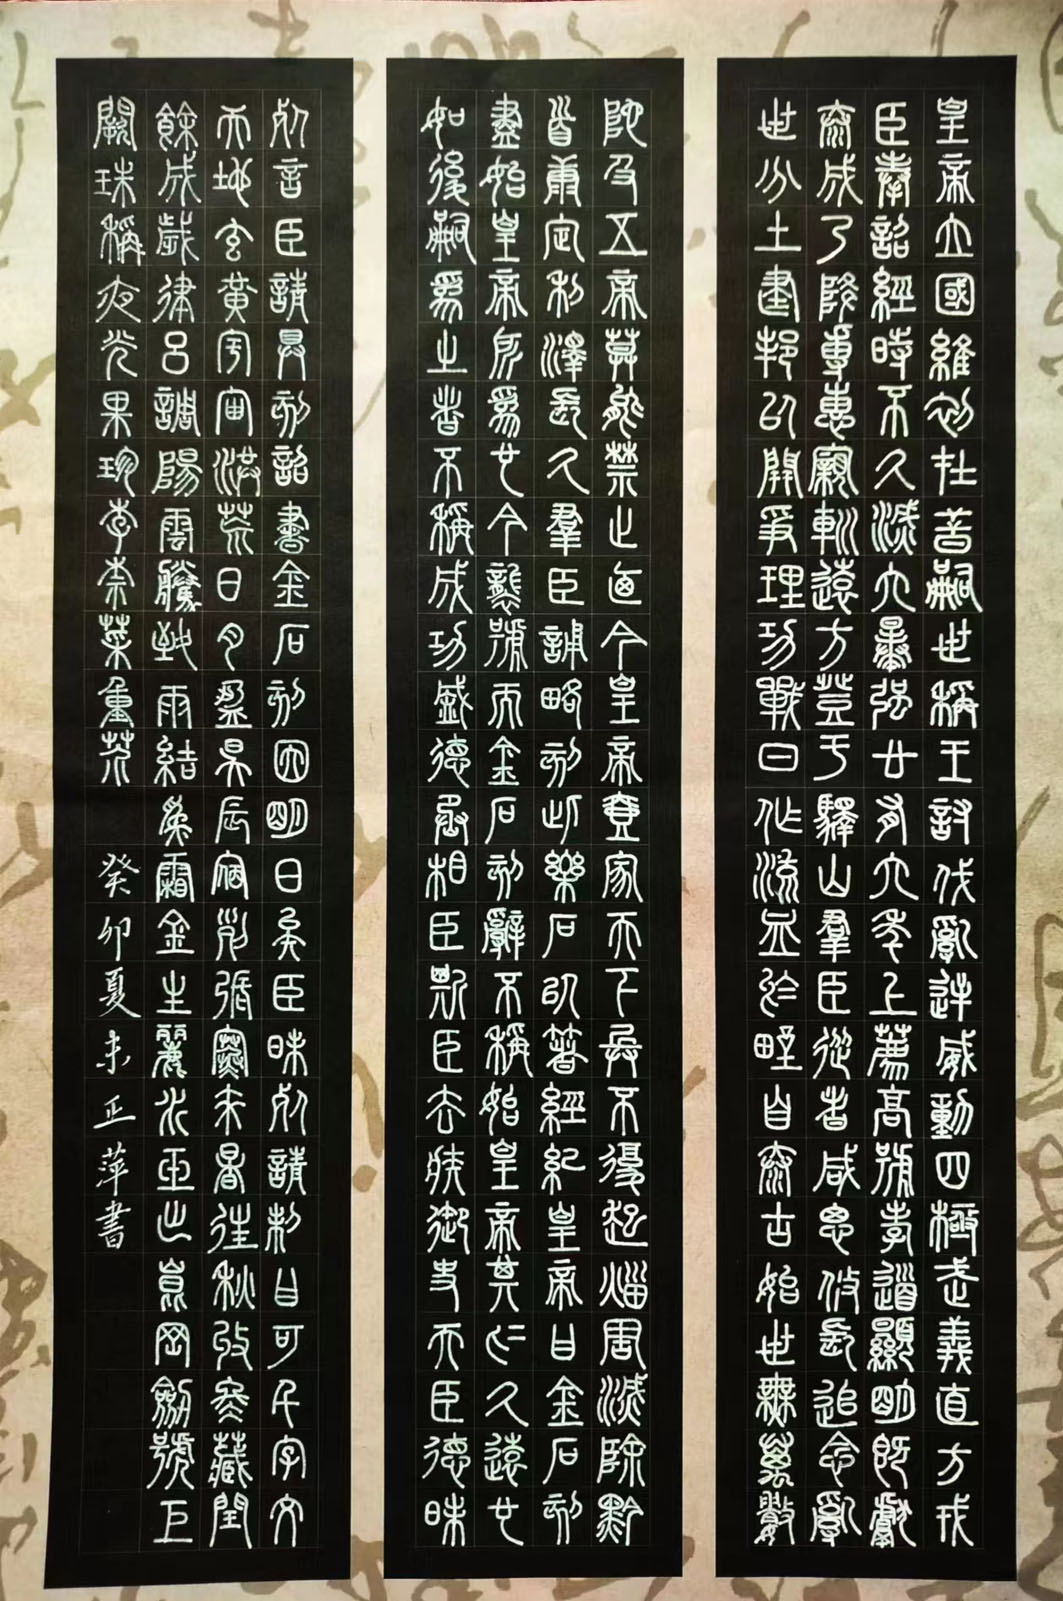 皇帝立國維初在昔嗣世稱王討伐亂逆威動四極武義直方戎
臣奉詔經時不久滅六暴強廿有六年上薦高號孝道顯明既獻
泰成乃降專惠親巡遠方登于驛山羣臣從者咸思攸長追念亂
世分土建邦以開爭理功戰日作流血於野自泰古始世無萬數
陀及五帝莫能禁止迺今皇帝壹家天下兵不復起災害滅除黔
首康定利澤長久羣臣誦略刻此樂石以著經紀皇帝曰金石刻
盡始皇帝所爲也今襲號而金石刻辭不稱始皇帝其於久遠也
如後嗣爲之者不稱成功盛德丞相臣斯臣去疾御史夫臣德昧
死言臣請具刻詔書金石刻因明白矣臣昧死請制曰可千字文
天地玄黃宇宙洪荒日月盈昃辰宿列張寒來暑往秋收冬藏閏
餘成歲律呂調陽雲騰致雨結爲霜金生麗水玉出崑岡劍號巨
闕珠稱夜光果珍李柰菜重芥
癸卯夏末正萍書